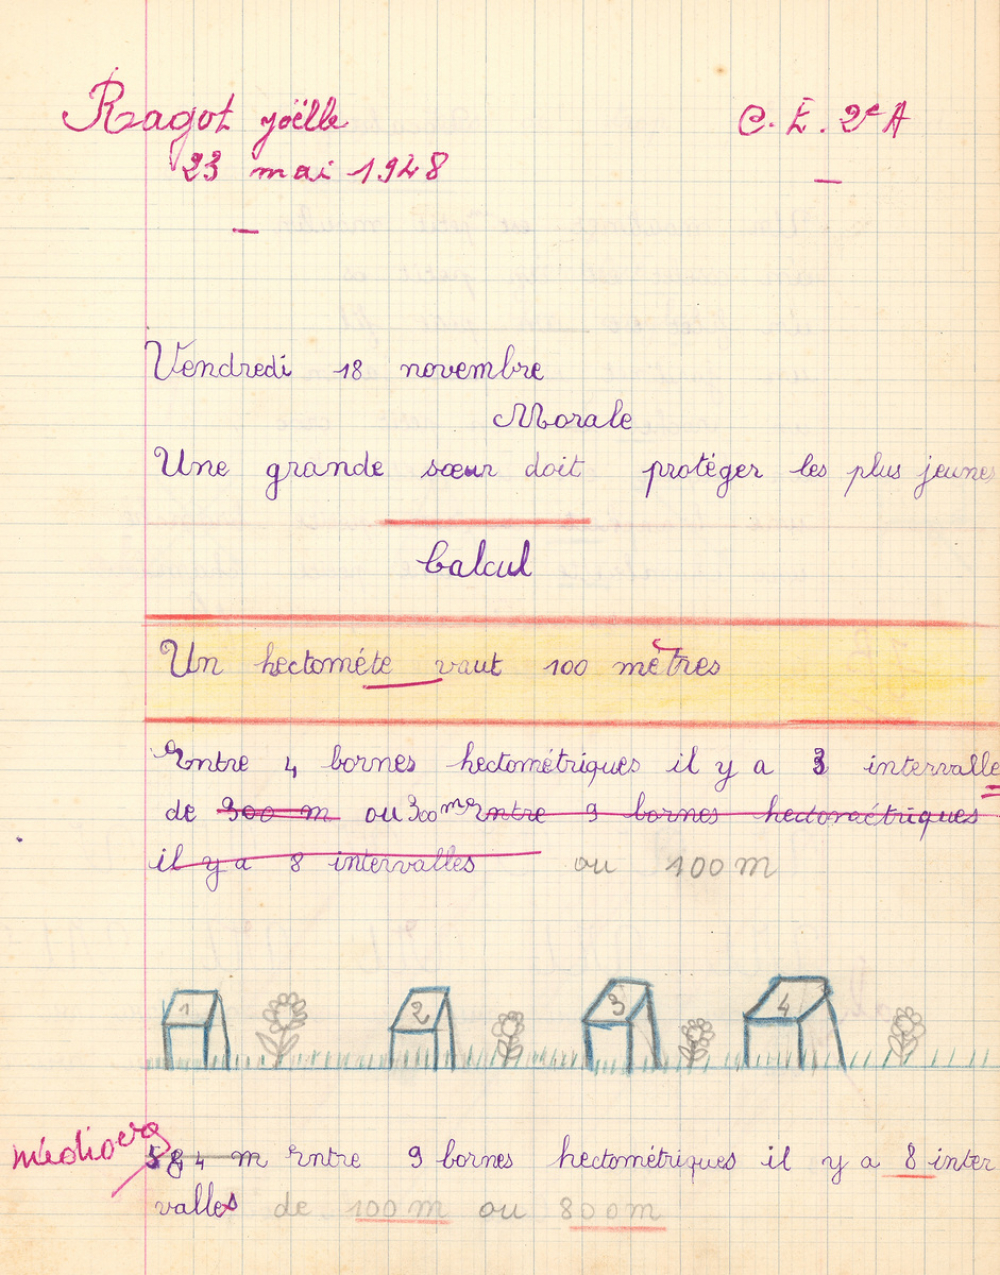 Ragot Joëlle C. E. 2e A
23 mai 1948
Vendredi 18 novembre
Morale
Une grande sœur doit protéger les plus jeunes
Calcul
Un hectométe vaut 100 mètres
Entre 4 bornes hectométriques il y a 3 intervalle
de 300 m ou 300 m Entre 9 bornes hectométriques
il y a 8 intervalles ou 100 m
1 2 3 4
médiocre 584 m Entre 9 bornes hectométriques il y a 8 inter
valles de 100 m ou 800 m